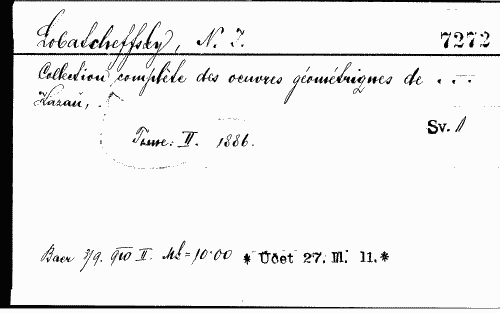 Lobatcheffsky, N. I. 7272
Collection complète des oeuvres géométriques de ...
Kazań,
Sv. 1
Tome: II. 1886.
Baer 3/9. 910 II. Mk = 10.00 * Účet 27. III. 11. *